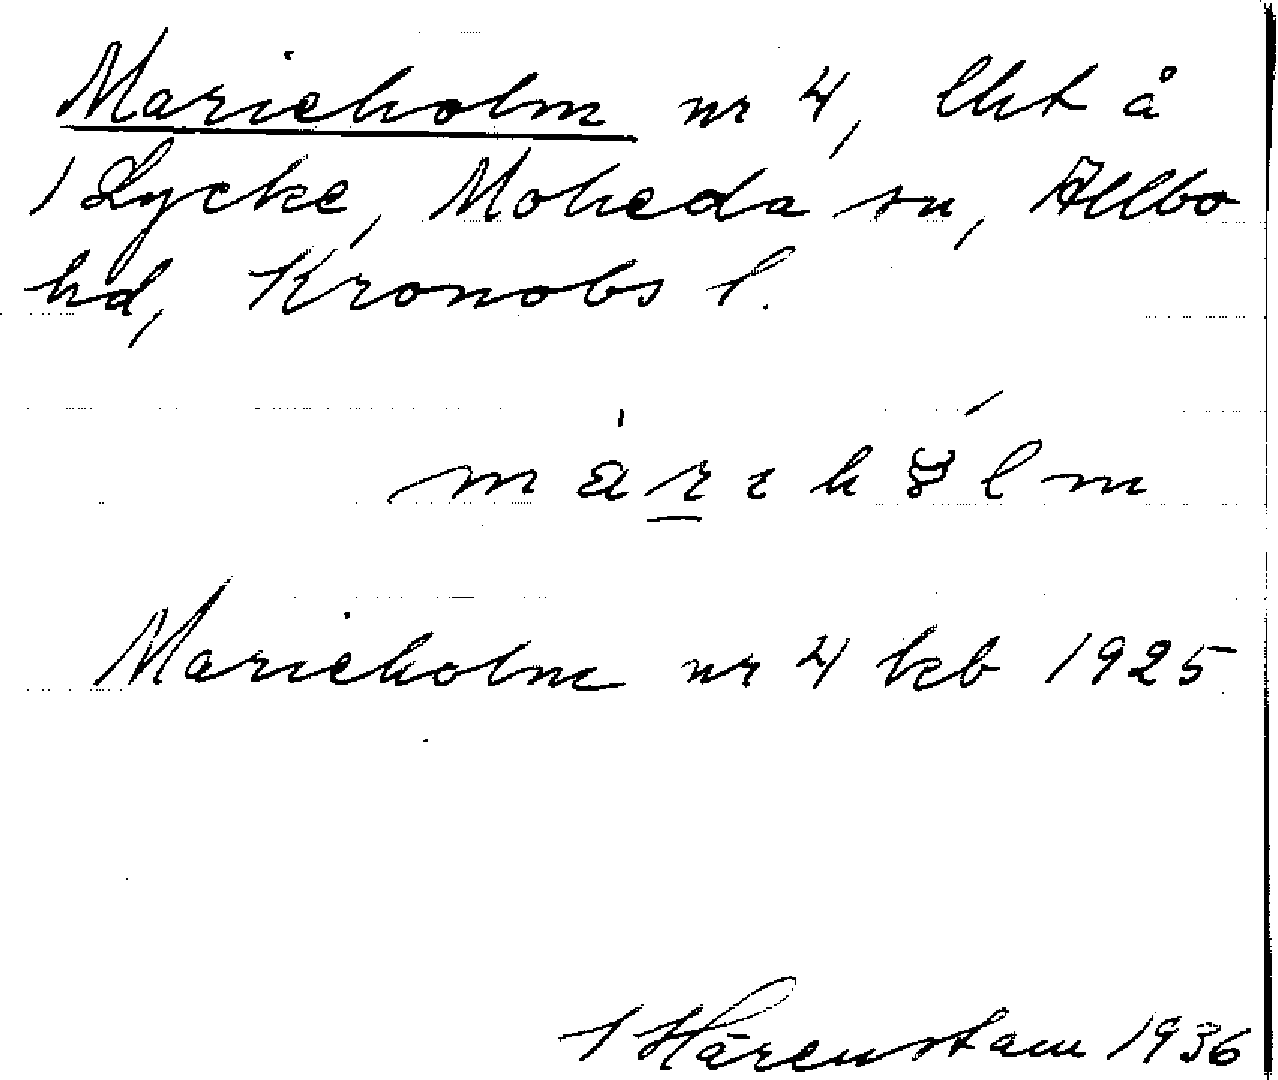 Marieholm nr 4, lht å
1 Lycke, Moheda sn, Allbo
hd, Kronobs l.
Marieholm nr 4 kb 1925
Härenstam 1936